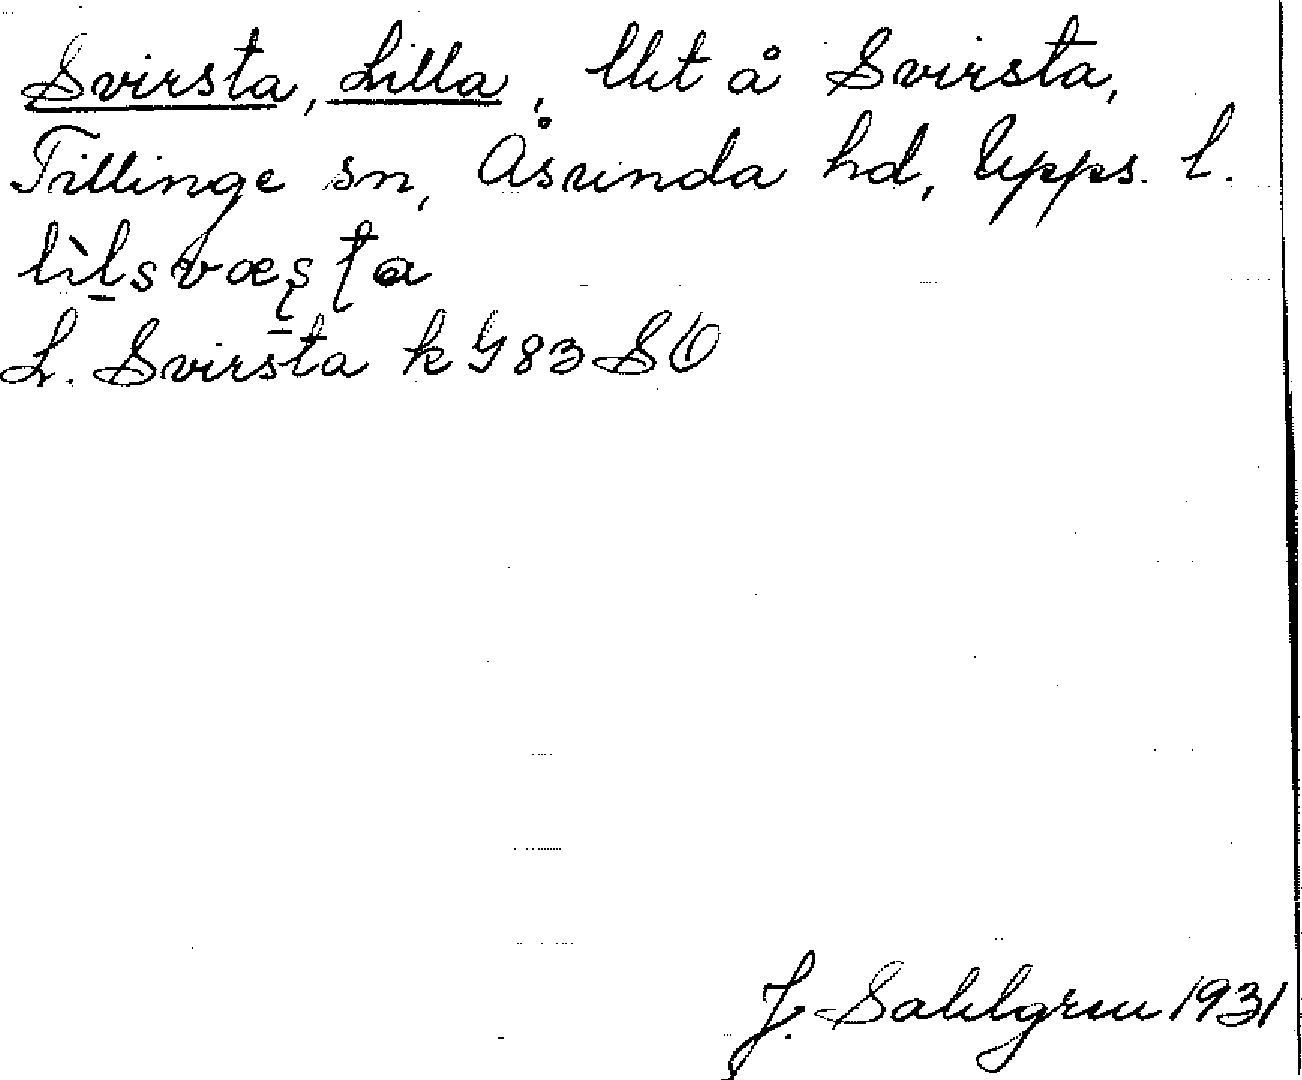 Svirsta, Lilla, lht å Svirsta,
Tillinge sn, Åsunda hd, Upps. l.
lìlsvæʂʈa
L. Svirsta k G83SO
J. Sahlgren 1931